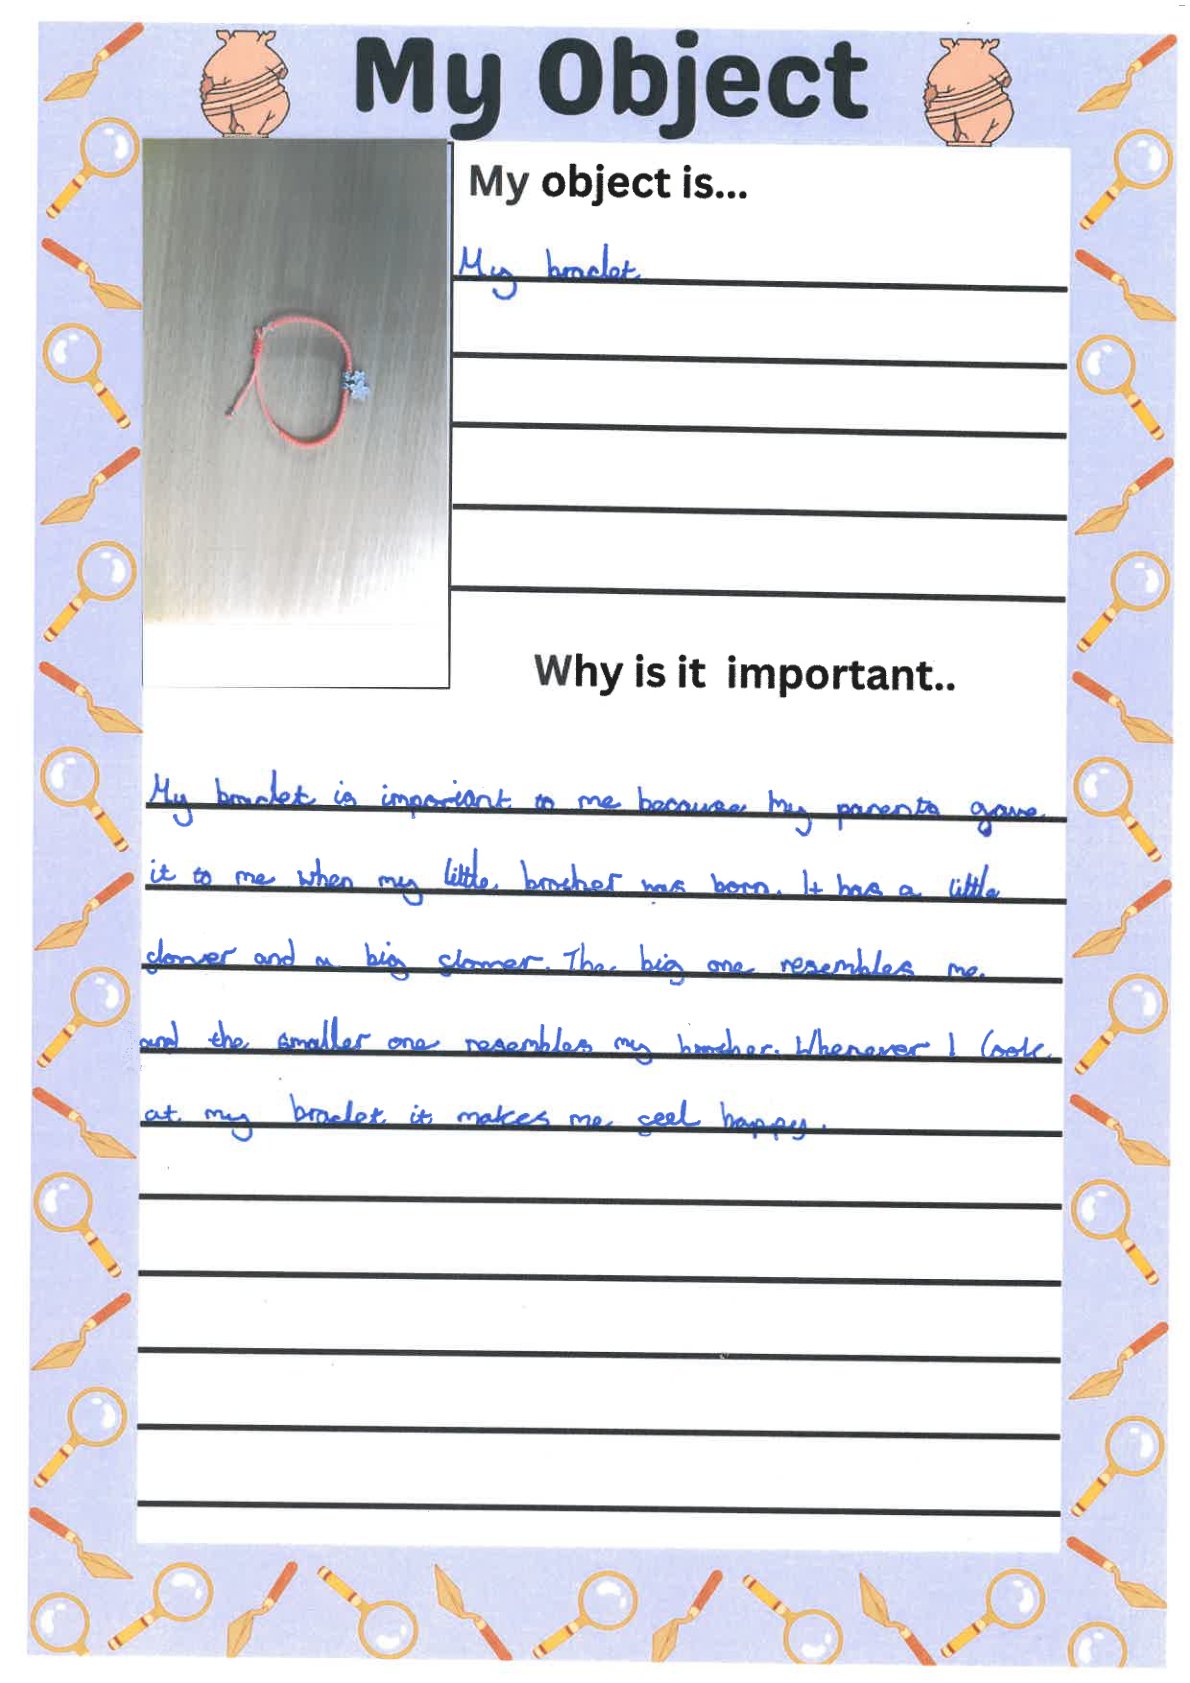 My Object
My object is...
My braclet
Why is it important..
My braclet is important to me because my parents gave
it to me when my little brother was born. It has a little
flower and a big flower. The big one resembles me
and the smaller one resembles my brother. Whenever I look
at my braclet it makes me feel happy.